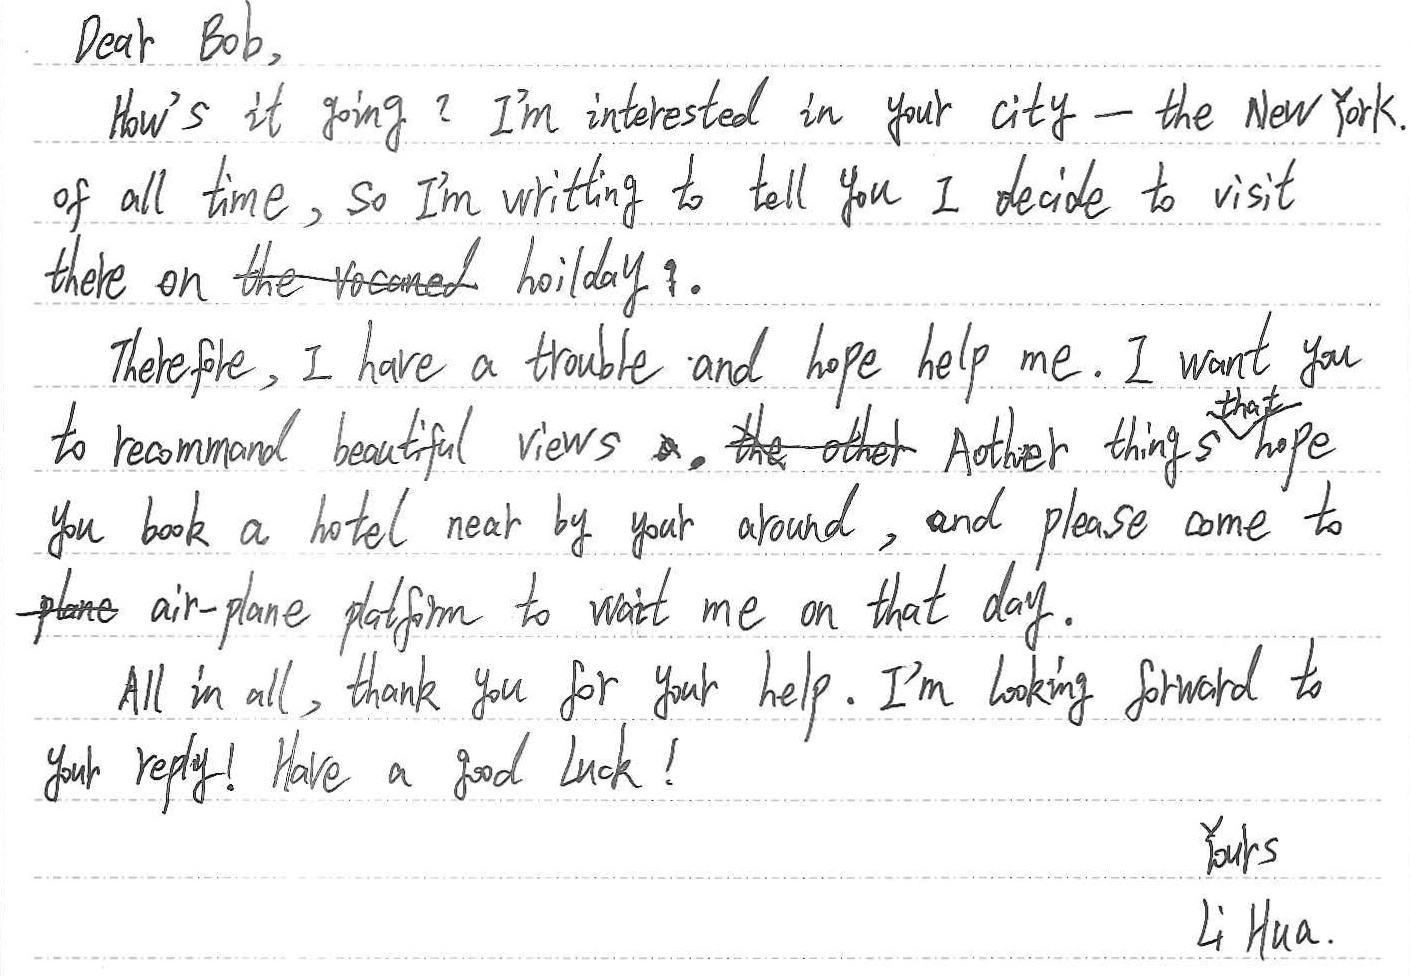 Dear Bob,
How's it going? I'm interested in your city — the New York.
of all time, so I'm writting to tell you I decide to visit
there on hoilday.
Therefore, I have a trouble and hope help me. I want you
to recommand beautiful views. the other Aother things that hope
you book a hotel near by your around, and please come to
plane air-plane platform to wait me on that day.
All in all, thank you for your help. I'm looking forward to
your reply! Have a good luck!
Yours
Li Hua.